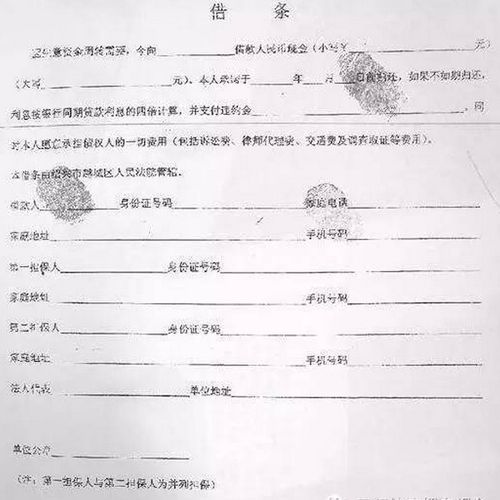 借 条
生意资金周转需要，今向 借款人民币现金（小写￥ 元）
（大写 元）。本人承诺于 年 月 日前归还，如果不如期归还，
利息按银行同期贷款利息的四倍计算，并支付违约金 ，同
时本人愿意承担债权人的一切费用（包括诉讼费、律师代理费、交通费及调查取证等费用）。
本借条由绍兴市越城区人民法院管辖。
借款人 身份证号码 家庭电话
家庭地址 手机号码
第一担保人 身份证号码
家庭地址 手机号码
第二担保人 身份证号码
家庭地址 手机号码
法人代表 单位地址
单位公章
（注：第一担保人与第二担保人为并列担保）